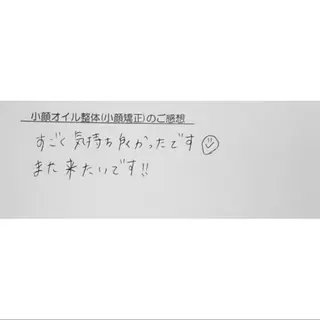 小顔オイル整体(小顔矯正)のご感想
すごく気持ち良かったです☺
また来たいです!!